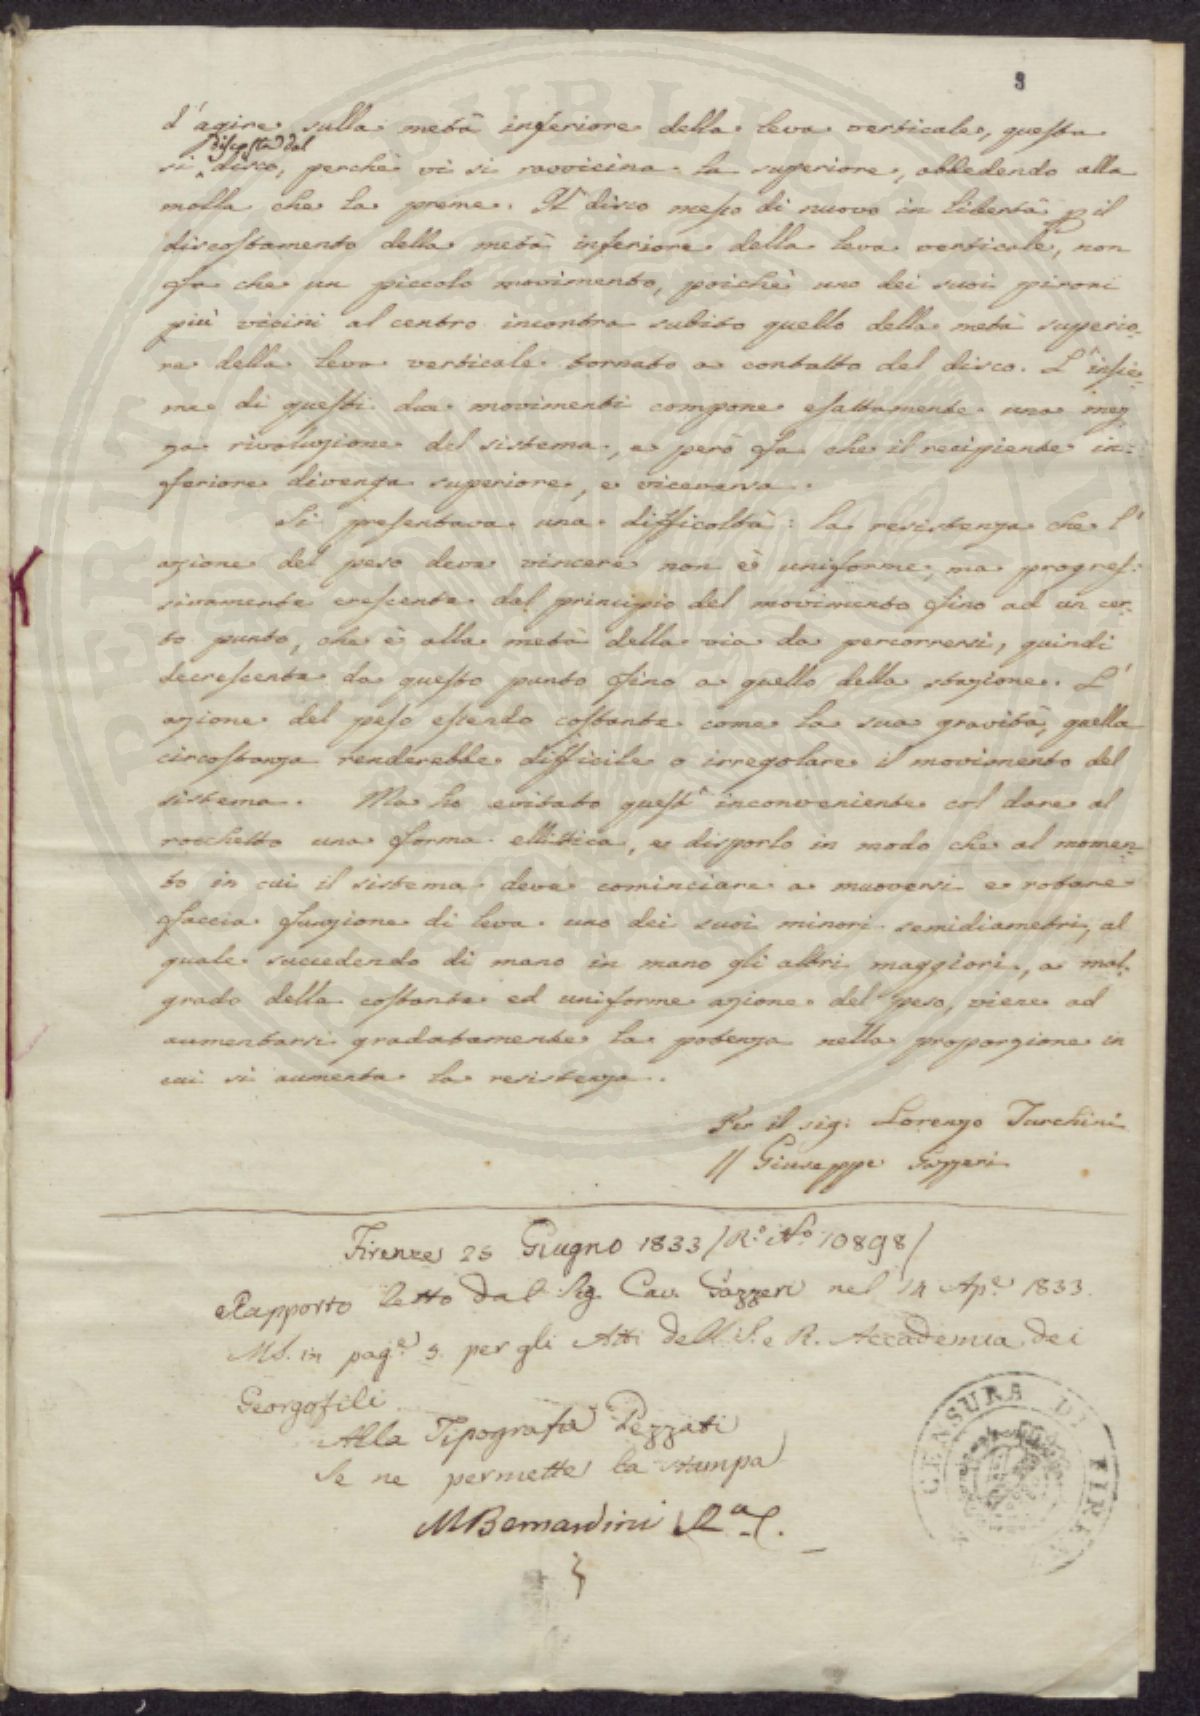 3
d'agire sulla metà inferiore della leva verticale, questa
discosta dal
si disco, perchè vi si ravvicina la superiore, obbedendo alla
molla che la preme. Il disco messo di nuovo in libertà p il
discostamento della metà inferiore della leva verticale, non
fa che un piccolo movimento, poichè uno dei suoi pironi
più vicini al centro incontra subito quello della metà superio-
re della leva verticale tornato a contatto del disco. L'insie-
me di questi due movimenti compone esattamente una mez
za rivoluzione del sistema, e però fa che il recipiente in-
feriore divenga superiore, e viceversa.
Si presentava una difficoltà: la resistenza che l'
azione del peso deve vincere non è uniforme, ma progres-
sivamente crescente dal principio del movimento fino ad un cer-
to punto, che è alla metà della via da percorrersi, quindi
decrescente da questo punto fino a quello della stazione. L'
azione del peso essendo costante come la sua gravità, quella
circostanza renderebbe difficile o irregolare il movimento del
sistema. Ma ho evitato quest'inconveniente col dare al
rocchetto una forma ellittica, e disporlo in modo che al momen-
to in cui il sistema deve cominciare a muoversi e rotare
faccia funzione di leva uno dei suoi minori semidiametri, al
quale succedendo di mano in mano gli altri maggiori, a mal-
grado della costante ed uniforme azione del peso, viene ad
aumentarsi gradatamente la potenza nella proporzione in
cui si aumenta la resistenza.
Per il sig: Lorenzo Turchini
// Giuseppe Gazzeri
Firenze 25 Giugno 1833 / R.º Nº 10898 /
Rapporto letto dal Sig. Cav. Gazzeri nel 14 Ap.e 1833.
MS. in pag.e 3. per gli Atti dell'I. e R. Accademia dei
Georgofili
Alla Tipografia Pezzati
Se ne permette la stampa
M Bernardini R.a C.
CENSURA DI FIREN